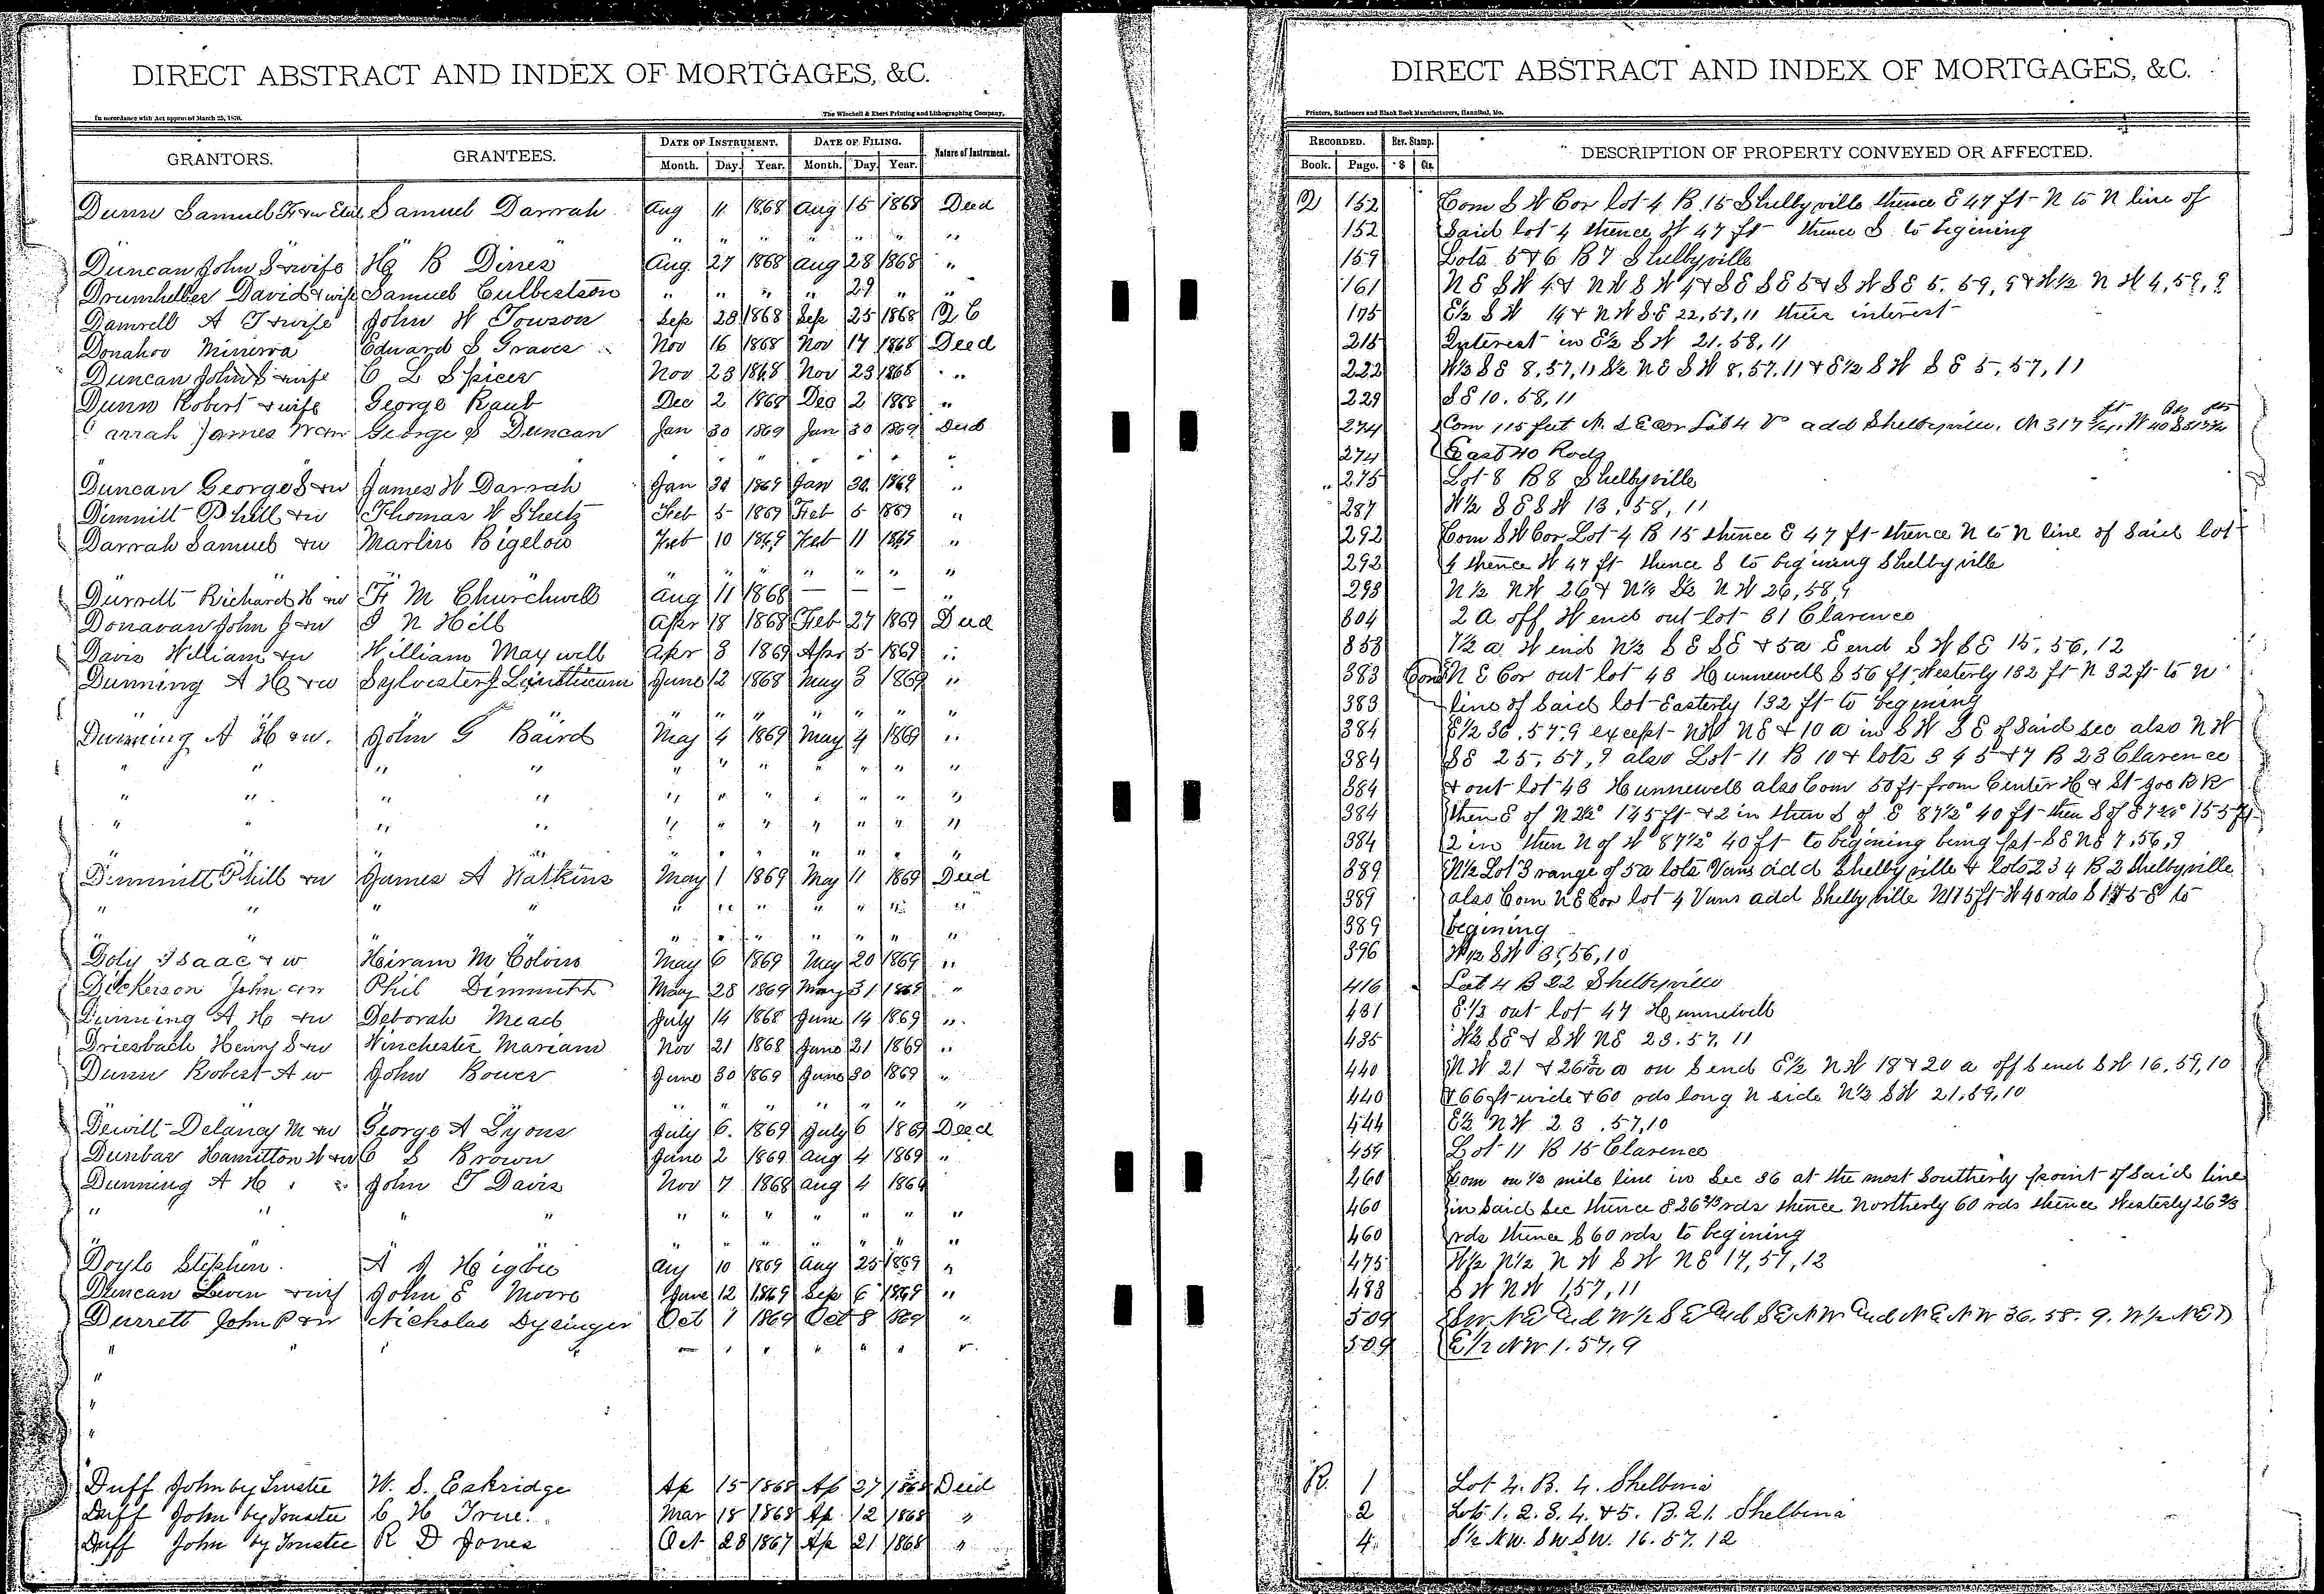 DIRECT ABSTRACT AND INDEX OF MORTGAGES, &C.
In accordance with Act approved March 25, 1870.
The Winchell & Ebert Printing and Lithographing Company,
GRANTORS. GRANTEES. DATE OF INSTRUMENT. DATE OF FILING. Nature of Instrument.
Month. Day. Year. Month. Day. Year.
Dunn Samuel Samuel Darrah Aug 11 1868 Aug 15 1868 Deed
" " " " " " "
Duncan John S & wife H B Dines Aug 27 1868 Aug 28 1868 "
Drumhelber David & wife Samuel Culbertson " " " " 29 " "
Damrell A T & wife John W Towson Sep 28 1868 Sep 25 1868 Q C
Donahoo Minerva Edward S Graves Nov 16 1868 Nov 17 1868 Deed
Duncan John S & wife C L Spicer Nov 23 1868 Nov 23 1868 "
Dunn Robert & wife George Raub Dec 2 1868 Dec 2 1868 "
arrah James W & w George S Duncan Jan 30 1869 Jan 30 1869 Deed
" " " " " " "
Duncan George S & w James W Darrah Jan 30 1869 Jan 30 1869 "
Dimmitt Phill & w Thomas W Sheetz Feb 5 1869 Feb 5 1869 "
Darrah Samuel & w Martin Bigelow Feb 10 1869 Feb 11 1869 "
" " " " " " " " "
Durrett Richard H & w F M Churchwell Aug 11 1868 — — — "
Donavan John J & w I N Hill Apr 18 1868 Feb 27 1869 Deed
Davis William & w William Maxwell Apr 3 1869 Apr 5 1869 "
Dunning A H & w Sylvester J Linthicum June 12 1868 May 3 1869 "
" " " " " " " " "
Dunning A H & w. John G Baird May 4 1869 May 4 1869 "
" " " " " " " " " " "
" " " " " " " " " " "
" " " " " " " " " " "
" " " " " " " " "
Dimmitt Phill & w James A Watkins May 1 1869 May 11 1869 Deed
" " " " " " " " " " "
" " " " " " " " "
Doty Isaac & w Hiram M Colvin May 6 1869 May 20 1869 "
Dickerson John & w Phil Dimmitt May 28 1869 May 31 1869 "
Dunning A H & w Deborah Mead July 14 1868 June 14 1869 "
Driesbach Henry S & w Winchester Mariam Nov 21 1868 June 21 1869 "
Dunn Robert A w John Bower June 30 1869 June 30 1869 "
" " " " " " "
Dewitt Delancy M & w George A Lyons July 6. 1869 July 6 1869 Deed
Dunbar Hamilton W & w C S Brown June 2 1869 Aug 4 1869 "
Dunning A H " " John T Davis Nov 7 1868 Aug 4 1869
" " " " " " " " " " "
" " " " " " " " "
Doyle Stephen. A J Higbee Aug 10 1869 Aug 25 1869 "
Duncan Lewen & wif John E Moore June 12 1869 Sep 6 1869 "
Durrett John P & w Nicholas Dysinger Oct 1 1869 Oct 8 1869 "
" " " " " " " " " " "
"
"
"
Duff John by Trustee W. S. Eakridge Ap 15 1868 Ap 27 1868 Deed
Duff John by Trustee C H True. Mar 18 1868 Ap 12 1868 "
Duff John by Trustee R D Jones Oct 28 1867 Ap 21 1868 "
DIRECT ABSTRACT AND INDEX OF MORTGAGES, &C.
Printers, Stationers and Blank Book Manufacturers, Hannibal, Mo.
RECORDED. Rev. Stamp. DESCRIPTION OF PROPERTY CONVEYED OR AFFECTED.
Book. Page. $ Cts.
Q 152 Com S W Cor lot 4 B. 15 Shelbyville thence E 47 ft N to N line of
152 Said lot 4 thence W 47 ft thence S to begining
159 Lots 5 & 6 B 7 Shelbyville
161 N E S W 4 & N W S W 4 & S E S E 5 & S W S E 5. 59, 9 & W½ N W 4, 59, 9
175 E½ S W 14 & N W S E 22, 57, 11 their interest
215 Interest in E½ S W 21. 58, 11
222 W½ S E 8, 57, 11 S½ N E S W 8, 57, 11 & E½ S W S E 5, 57, 11
229 S E 10. 58, 11
274 Com 115 feet N. S E cor Lot 4 add Shelbyville. N 317
274 East 40 Rods
275 Lot 8 B 8 Shelbyville
287 W½ S E S W 13, 58, 11
292 Com S W Cor Lot 4 B 15 thence E 47 ft thence N to N line of said lot
292 4 thence W 47 ft thence S to begining Shelbyville
293 N ½ N W 26 & N½ S½ N W 26, 58, 9
304 2 a off W end out lot 31 Clarence
353 7½ a W end N½ S E S E & 5 a E end S W S E 15, 56, 12
383 Com N E Cor out lot 43 Hunnewell S 56 ft Westerly 132 ft N 32 ft to N
383 line of said lot Easterly 132 ft to begining
384 E½ 36, 57, 9 except N W N E & 10 a in S W S E of said sec also N W
384 S E 25, 57, 9 also Lot 11 B 10 & lots 3 4 5 & 7 B 23 Clarence
384 & out lot 43 Hunnewell also Com 50 ft from Center H & St Joe R R
384 then E of N 2½° 145 ft & 2 in then S of E 87½° 40 ft then S of 155 ft
384 2 in then N of W 87½° 40 ft to begining being pt S E N E 7, 56, 9
389 N½ Lot 3 range of 5 a lots Vans add Shelbyville & lots 2 3 4 B 2 Shelbyville
389 also Com N E Cor lot 4 Vans add Shelbyville N 115 ft W 40 rds S 115 E to
389 begining
396 W½ S W 35, 56, 10
416 Lot 4 B 22 Shelbyville
431 E. ½ out lot 47 Hunnewell
435 W½ S E & S W N E 23. 57. 11
440 N W 21 & a on S end E½ N W 18 & 20 a off S end S W 16, 59, 10
440 & 66 ft wide & 60 rds long N side N½ S W 21, 59, 10
444 E½ N W 23. 57, 10
459 Lot 11 B 15 Clarence
460 Com on ½ mile line in Sec 36 at the most Southerly point of said line
460 in said Sec thence E 26 2/3 rds thence Northerly 60 rds thence Westerly 26 2/3
460 rds thence S 60 rds to begining
475 W½ N½ N W S W N E 17, 57, 12
488 S W N W 1, 57, 11
509 S W N E and W ½ S E and S E N W and N E N W 36. 58. 9. W ½ N E &
509 E ½ N W 1. 57, 9
R. 1 Lot 4. B. 4. Shelbina
2 Lots 1. 2. 3. 4. & 5. B. 21. Shelbina
4 S ½ N W. S W S W. 16. 57. 12